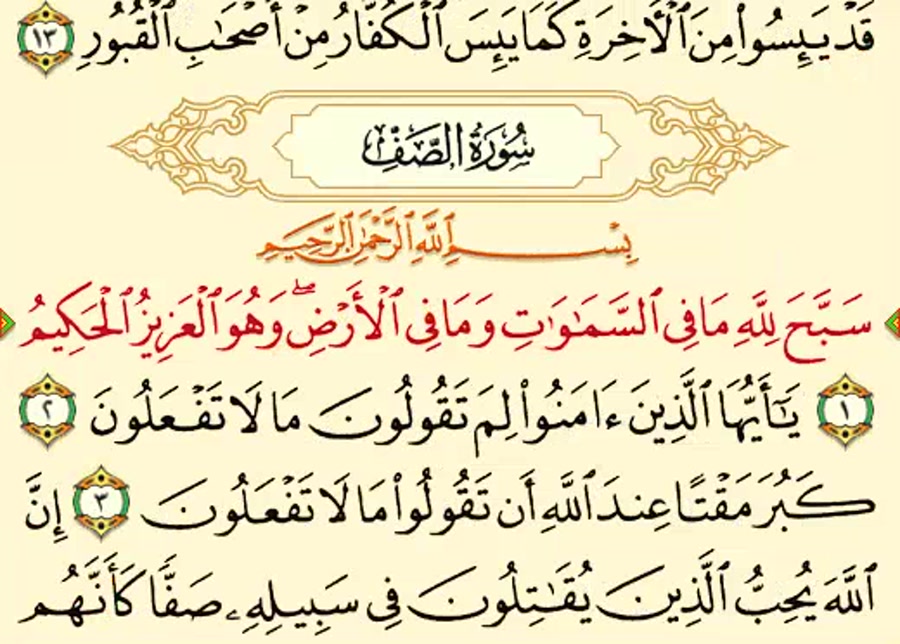 قَدْ يَئِسُوا۟ مِنَ ٱلْأَخِرَةِ كَمَا يَئِسَ ٱلْكُفَّارُ مِنْ أَصْحَٰبِ ٱلْقُبُورِ ١٣
سُورَةُ الصَّفِّ
بِسْمِ ٱللَّهِ ٱلرَّحْمَٰنِ ٱلرَّحِيمِ
سَبَّحَ لِلَّهِ مَا فِى ٱلسَّمَٰوَٰتِ وَمَا فِى ٱلْأَرْضِ ۖ وَهُوَ ٱلْعَزِيزُ ٱلْحَكِيمُ
١ يَٰٓأَيُّهَا ٱلَّذِينَ ءَامَنُوا۟ لِمَ تَقُولُونَ مَا لَا تَفْعَلُونَ ٢
كَبُرَ مَقْتًا عِندَ ٱللَّهِ أَن تَقُولُوا۟ مَا لَا تَفْعَلُونَ ٣ إِنَّ
ٱللَّهَ يُحِبُّ ٱلَّذِينَ يُقَٰتِلُونَ فِى سَبِيلِهِۦ صَفًّا كَأَنَّهُم